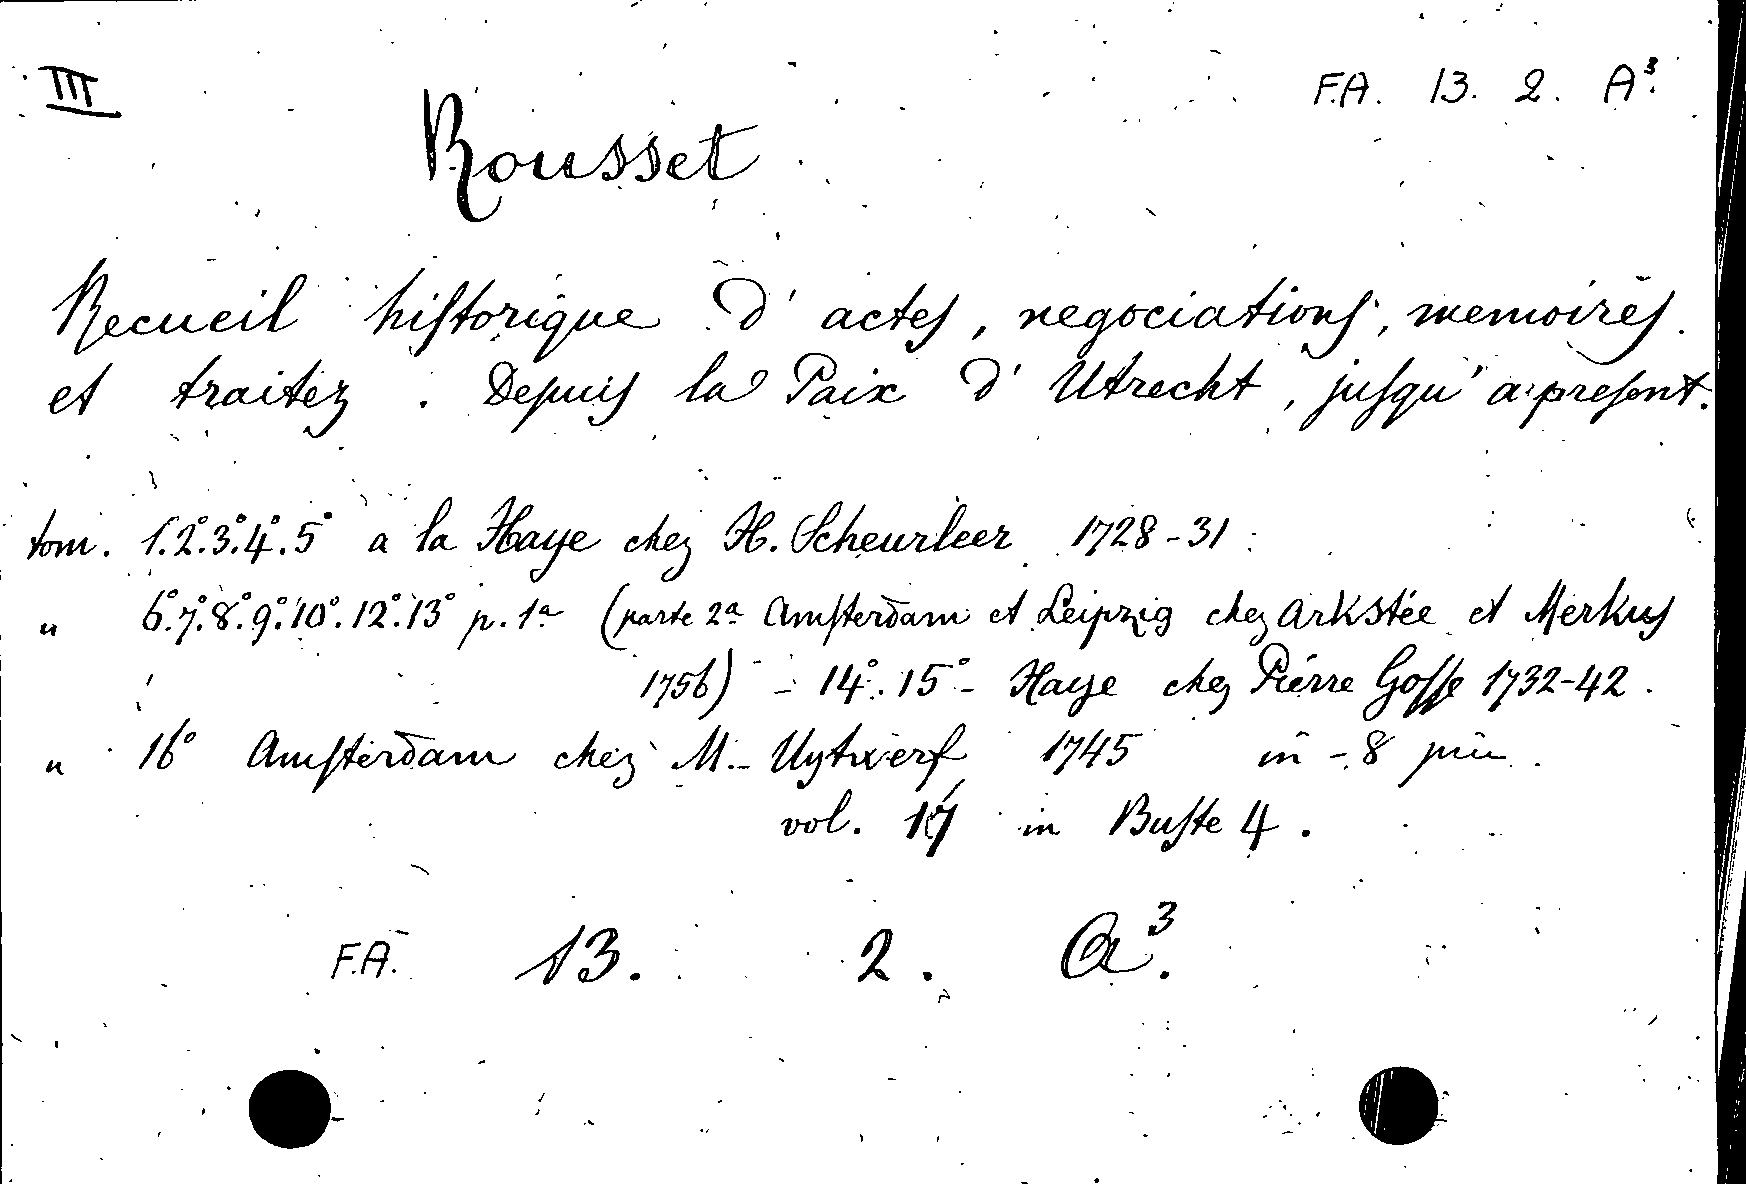 III
F.A. 13. 2. A³.
Rousset
Recueil historique d' actes, negociations, memoires
et traitez. Depuis la Paix d' Utrecht, jusqu' a present.
tom. 1.2°.3°.4°.5° a la Haye chez H. Scheurleer 1728-31.
" 6°.7°.8°.9°.10°.12°.13° p. 1ª (parte 2ª Amsterdam et Leipzig chez Arkstée et Merkus
1756) - 14°. 15° - Haye chez Pierre Gosse 1732-42.
" 16° Amsterdam chez M. Uytwerf 1745 in - 8 pic.
vol. 17 in Buste 4.
F.A. 13. 2. A³.